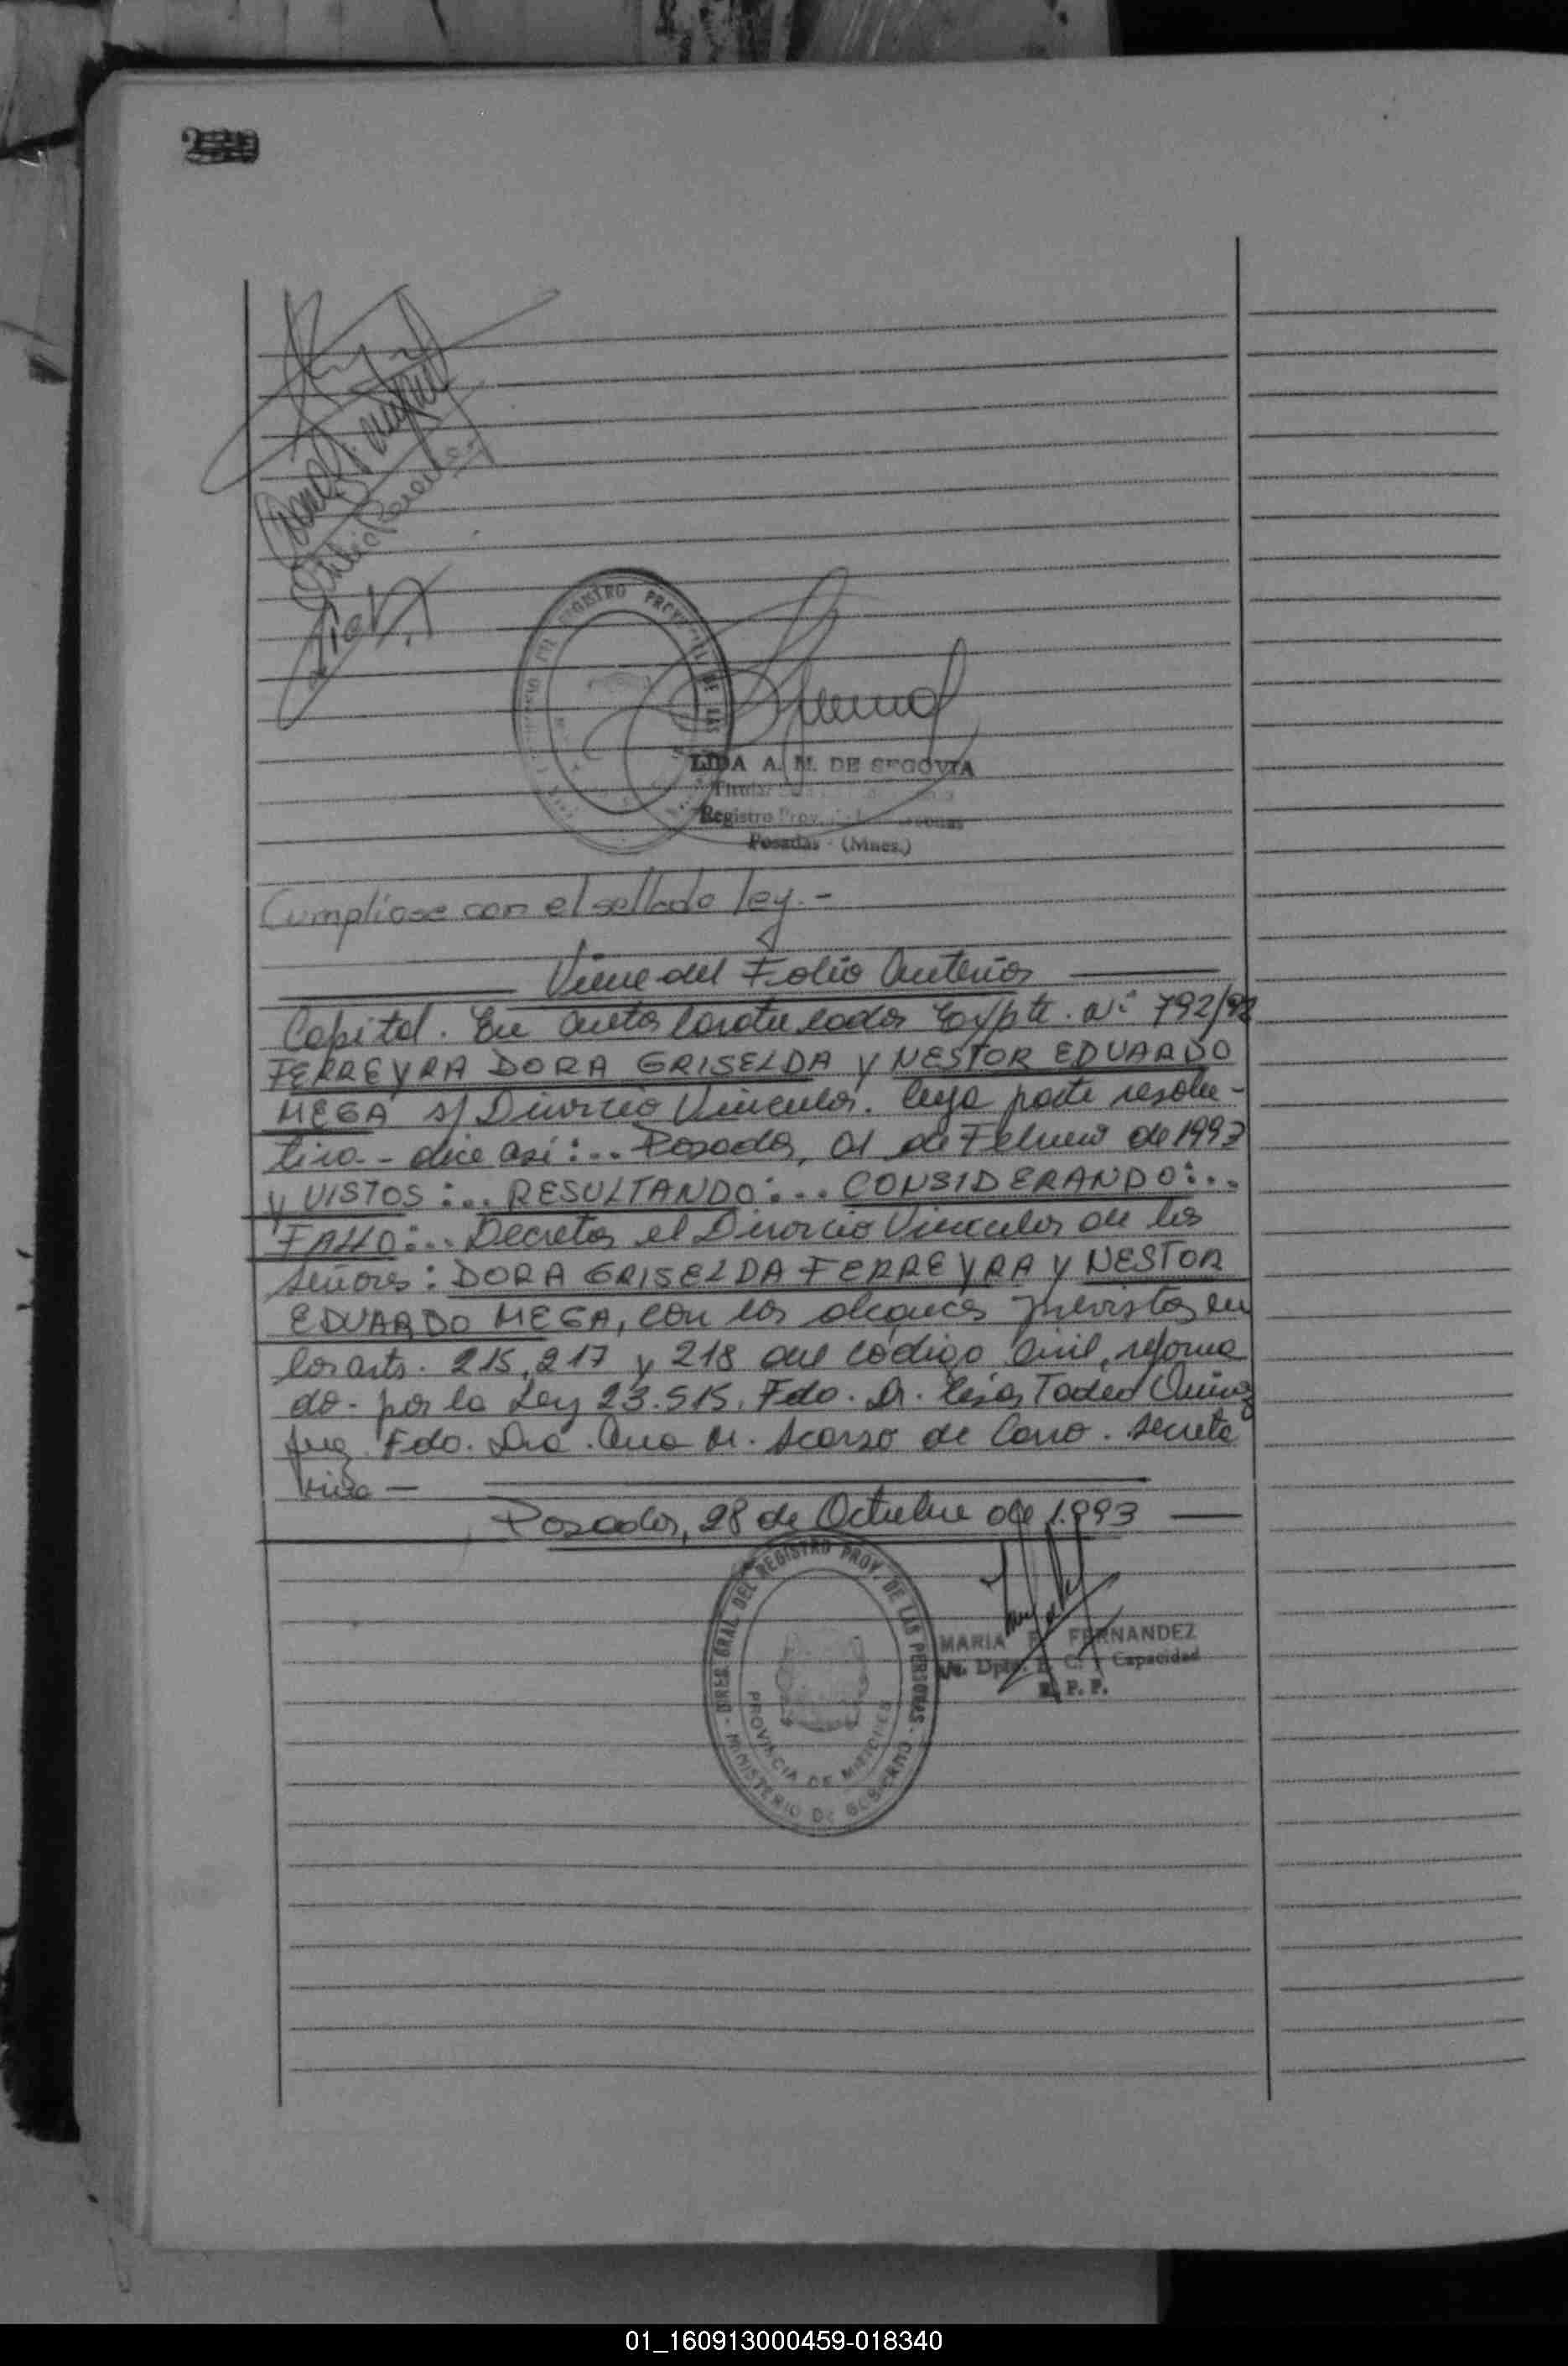 REGISTRO PROVINCIAL DE LAS
LIDA A. M. DE SEGOVIA
Titular
Registro Prov.
Posadas - (Mnes.)
Cumpliose con el sellado ley.-
Viene del Folio Anterior
Capital. En autos Caratulados Expte. Nº 792/92
FERREYRA DORA GRISELDA y NESTOR EDUARDO
MEGA s/ Divorcio Vincular. Cuya parte resolu-
tiva - dice así:... Posadas, 01 de Febrero de 1993
y VISTOS:... RESULTANDO:... CONSIDERANDO:...
FALLO:... Decretar el Divorcio Vincular de los
señores: DORA GRISELDA FERREYRA y NESTOR
EDUARDO MEGA, con los alcances previstos en
los arts. 215, 217 y 218 del Código Civil, reforma
do - por la Ley 23.515. Fdo. Dr. Tadeo
Juez. Fdo. Dra. Ana M. Scarso de Cano. Secreta
ria —
Posadas, 28 de Octubre de 1.993
DIREC. GRAL. DEL REGISTRO PROV. DE LAS PERSONAS
PROVINCIA DE MISIONES
MINISTERIO DE GOBIERNO
MARIA FERNANDEZ
Dpto. E. C. y Capacidad
R. P. P.
01_160913000459-018340